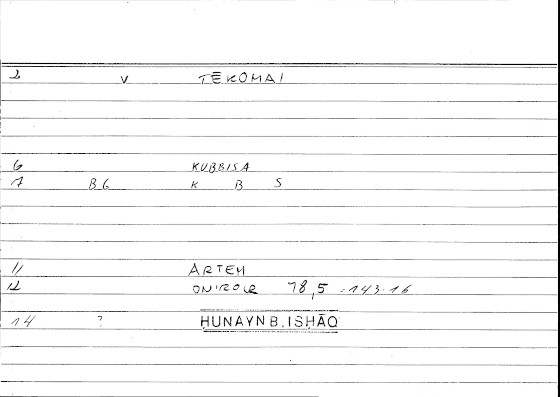 2 V TĒKOMAI
6 KUBBISA
7 BG K B S
11 ARTEM
12 ONIROCR 78,5 = 143.16
14 ? ḤUNAYN B. ISḤĀQ